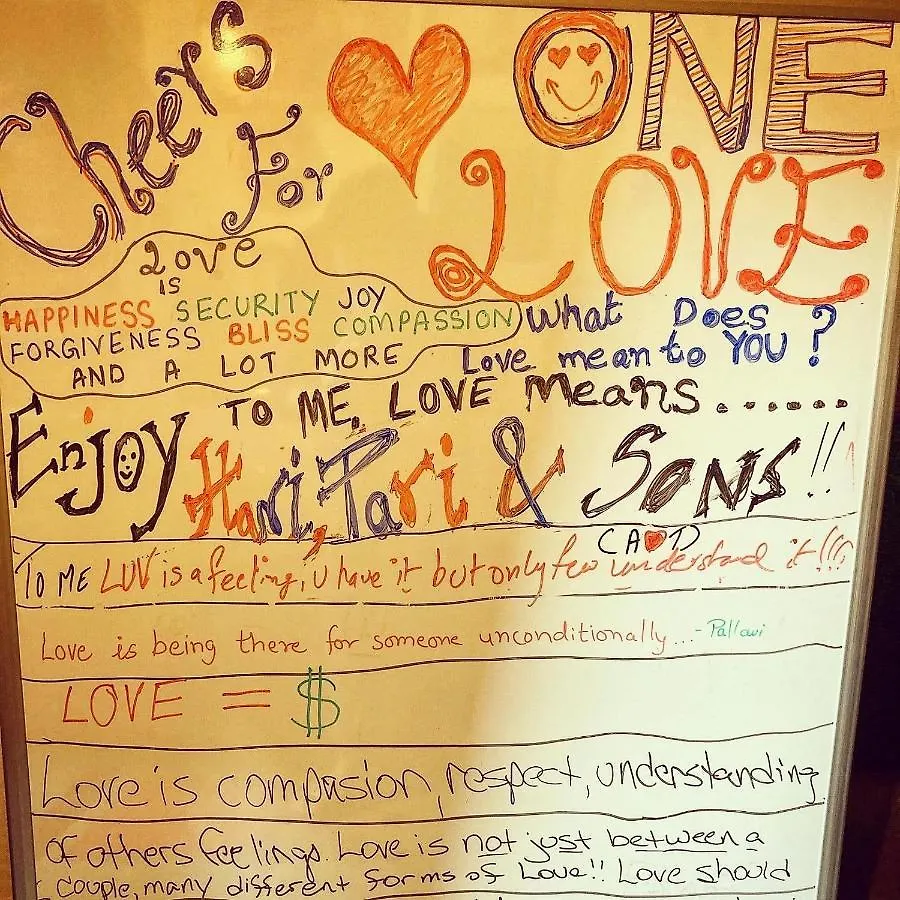 Cheers
For
ONE
LOVE
Love
IS
HAPPINESS SECURITY JOY
FORGIVENESS BLISS COMPASSION
AND A LOT MORE
What Does
Love mean to YOU ?
TO ME, LOVE Means.......
Enjoy Hari, Pari & SONS!!
TO ME LUV is a feeling, u have it but only few CAN understand it!!!
Love is being there for someone unconditionally...- Pallavi
LOVE = $
Love is compasion, respect, understanding
of others feelings. Love is not just between a
couple, many different forms of Love!! Love should